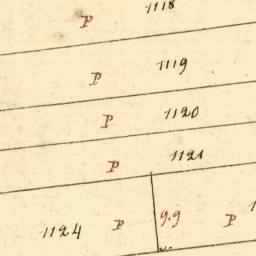 P 1118
P 1119
P 1120
P 1121
1124 P 9.9 P